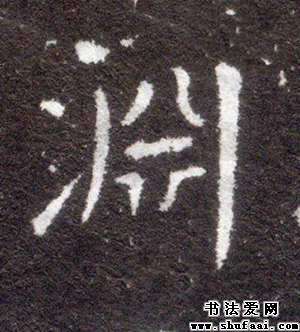 淵
书法爱网
www.shufaai.com